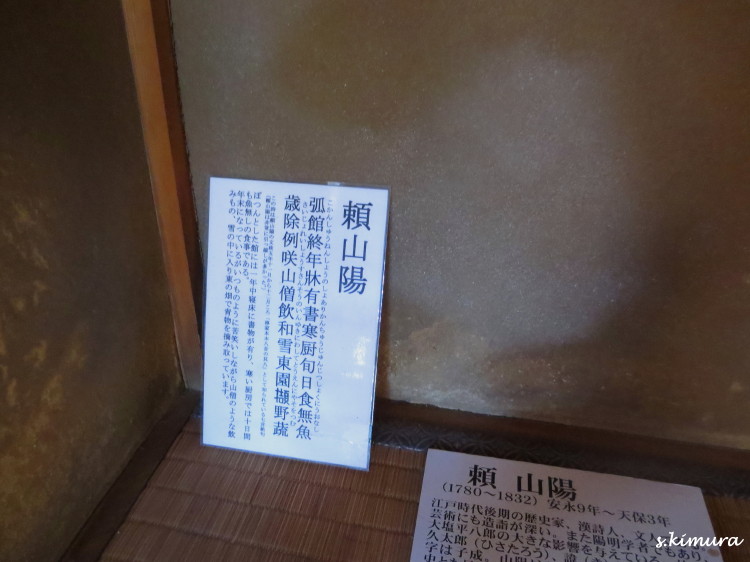 頼山陽
弧館終年牀有書寒厨旬日食無魚
歳除例咲山僧飲和雪東園擷野蔬
ぽつんとした館には一年中寝床に書物が有り、寒い厨房では十日間
も魚無しの食事である。
年末になっているがいつものように苦笑いしながら山僧のような飲
みもの、雪の中に入り東の畑で青物を摘み取っています。
頼 山陽
(1780～1832) 安永9年～天保3年
江戸時代後期の歴史家、漢詩人、文人
芸術にも造詣が深い。また陽明学者でもあり、
大塩平八郎の大きな影響を与えている。
久太郎(ひさたろう)、
字は子成。
s.kimura